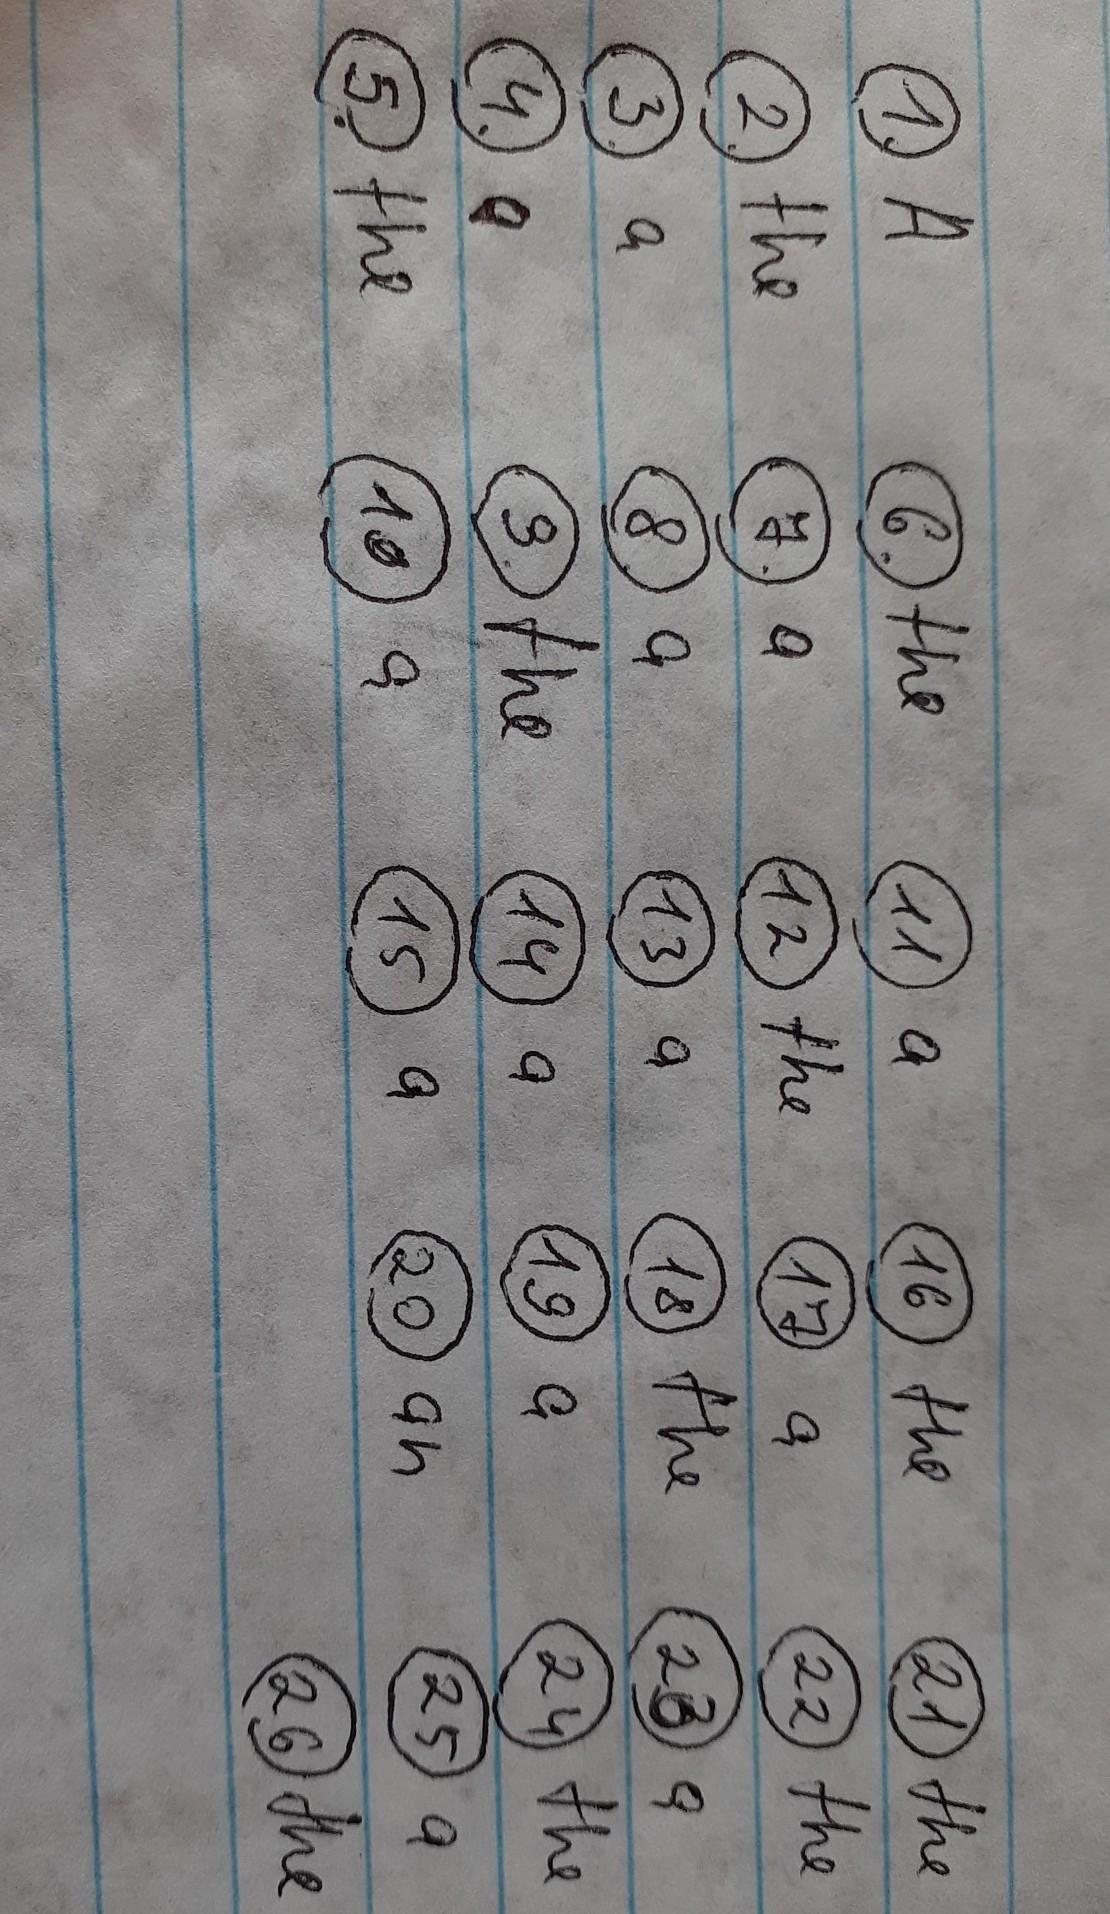 1. A 6. the 11 a 16 the 21 the
2. the 7. a 12 the 17 a 22 the
3. a 8 a 13 a 18 the 23 a
4. a 9. the 14 a 19 a 24 the
5. the 10 a 15 a 20 an 25 a
26 the